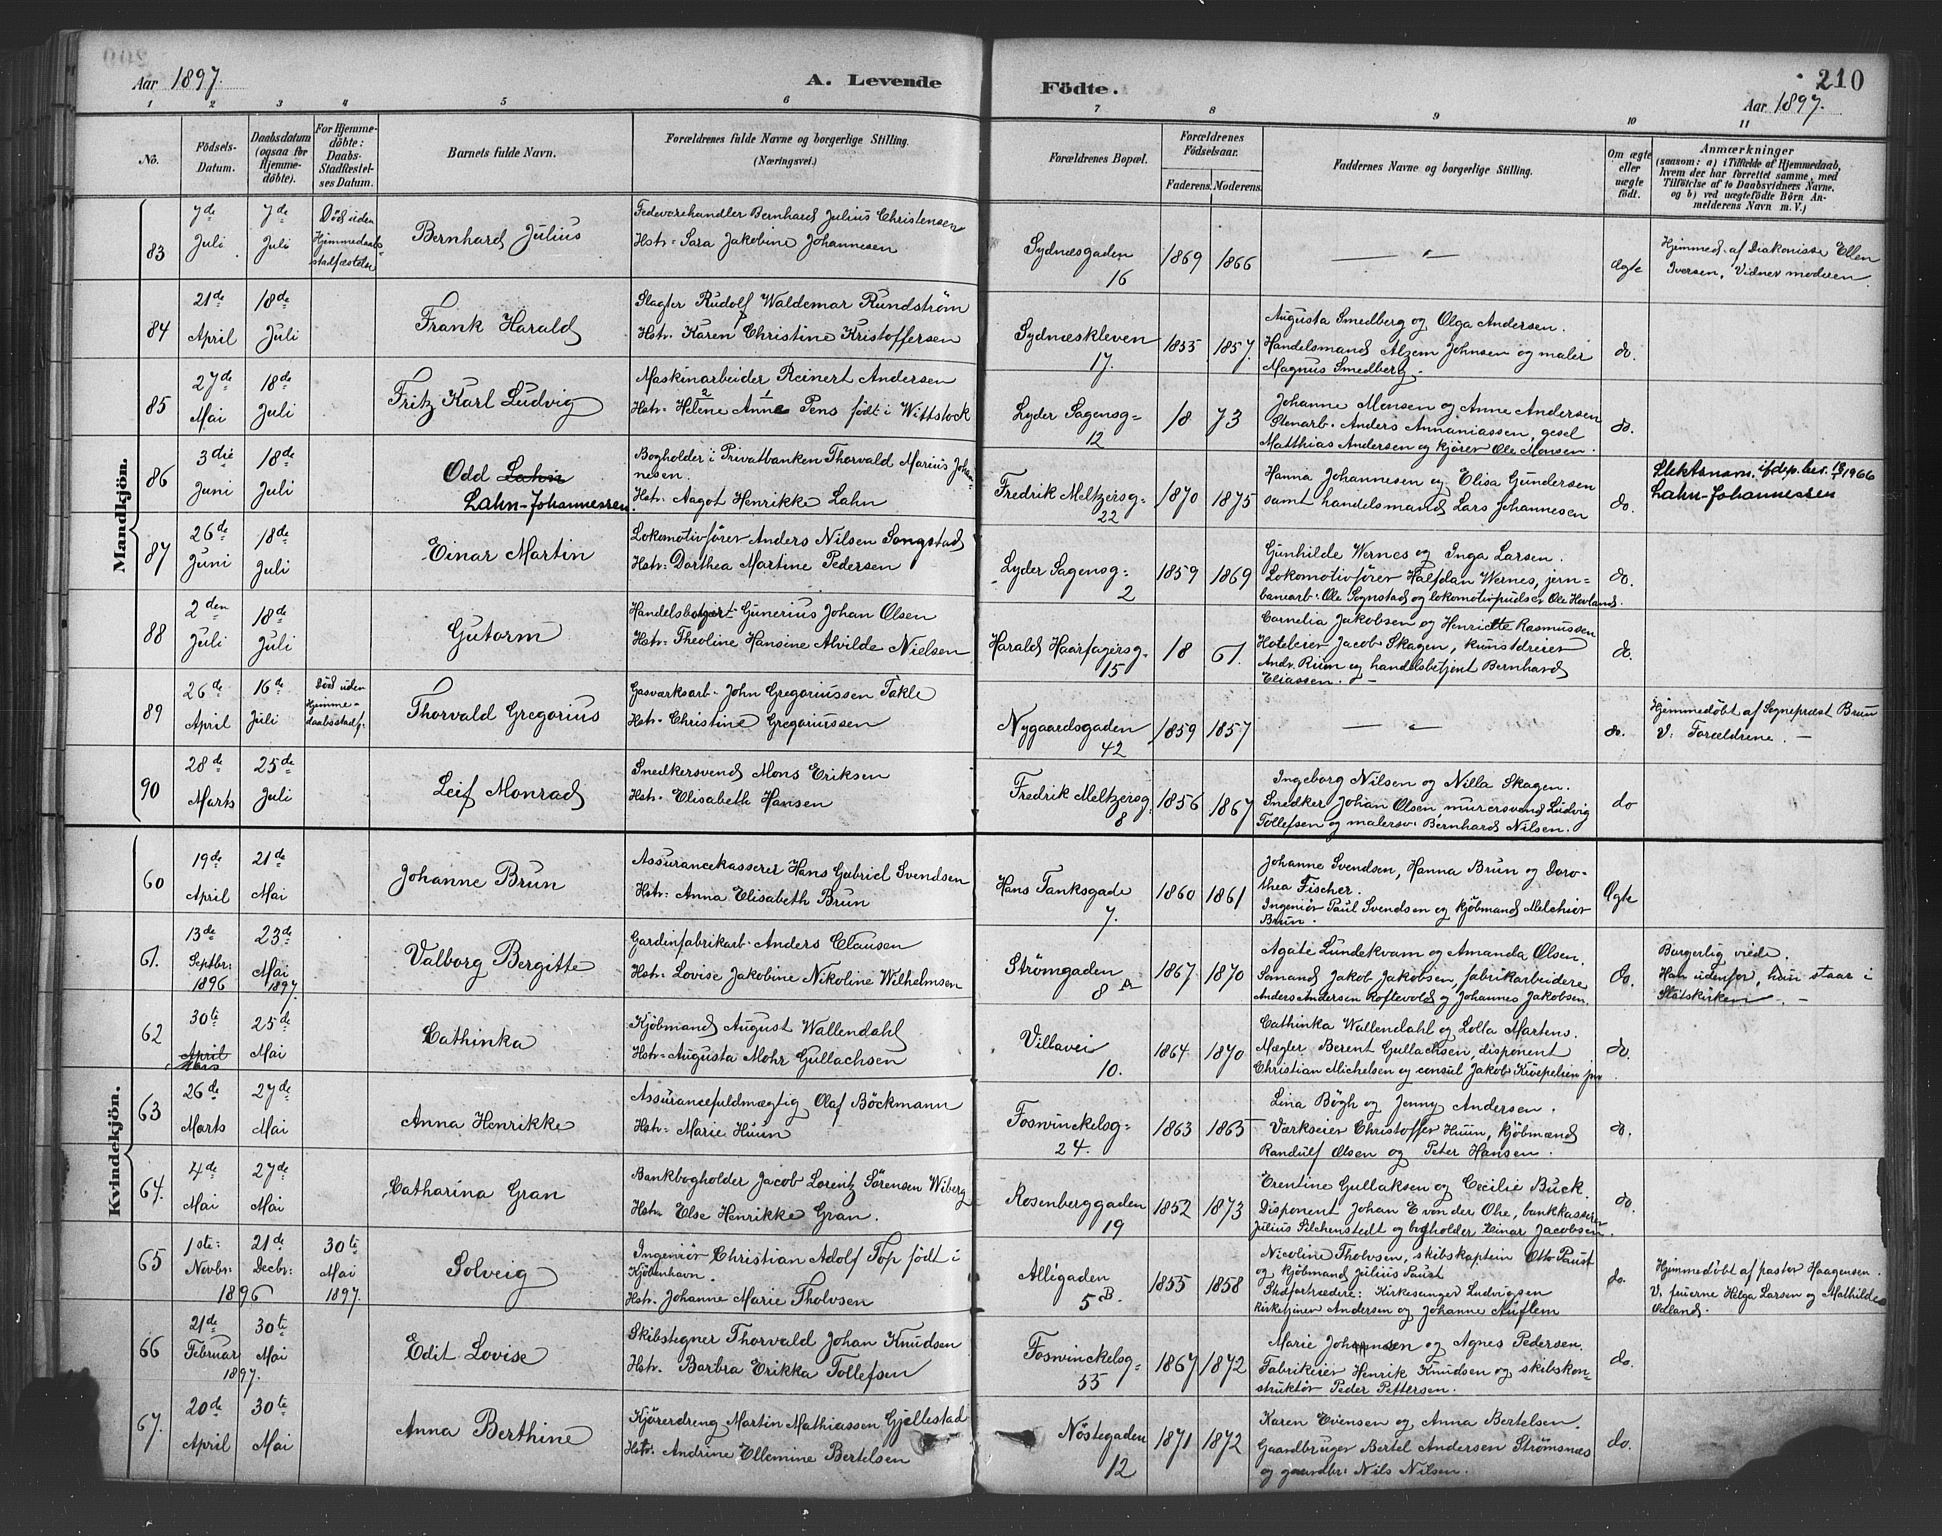 Aar 1897.
A. Levende
Födte.
210
Aar 1897.
1 2 3 4 5 6 7 8 9 10 11
No.
Födsels-Datum.
Daabsdatum (ogsaa for Hjemmedöbte).
For Hjemmedöbte: Daabs-Stadfæstelses Datum.
Barnets fulde Navn.
Forældrenes fulde Navne og borgerlige Stilling.
(Næringsvei.)
Forældrenes Bopæl.
Forældrenes Födselsaar.
Faderens. Moderens.
Faddernes Navne og borgerlige Stilling.
Om ægte eller uægte födt.
Anmærkninger
(saasom: a) i Tilfælde af Hjemmedaab,
hvem der har forrettet samme, med
Tilföielse af to Daabsvidners Navne,
og b) ved uægtefödte Börn Anmelderens Navn m. V.)
Mandkjön.
83
7de Juli
7de Juli
Död uden Hjemmedaabsstadfæstelse
Bernhard Julius
Fedevarehandler Bernhard Julius Christensen
Hstr. Sara Jakobine Johannesen
Sydnæsgaden 16
1869 1866
— " —
Ægte
Hjemmed. af Diakonisse Ellen
Iversen, Vidner moderen
84
21de April
18de Juli
Frank Harald
Slagter Rudolf Waldemar Rundström
Hstr. Karen Christine Kristoffersen
Sydnæskleven 17.
1855 1857.
Augusta Smedberg og Olga Andersen.
Handelsmand Alzem Johnsen og maler
Magnus Smedberg.
do.
85
27de Mai
18de Juli
Fritz Karl Ludvig
Maskinarbeider Reinert Andersen
Hstr. Helene Anne Pens födt i Wittstock
Lyder Sagensg= 12
18 73
Johanne Monsen og Anne Andersen
Stenarb. Anders Annaniassen, gesel
Matthias Andersen og kjörer Ole Monsen.
do.
86
3die Juni
18de Juli
Odd Lahn
Lahn-Johannessen
Bogholder i Privatbanken Thorvald Marius Johannesen.
Hstr. Aagot Henrikke Lahn
Fredrik Meltzersg= 22
1870 1875
Hanna Johannesen og Elisa Gundersen
samt handelsmand Lars Johannesen
do.
Slektsnavn ifdp. bev. 1966
Lahn-Johannessen
87
26de Juni
18de Juli
Einar Martin
Lokomotivförer Anders Nilsen Songstad
Hstr. Dorthea Martine Pedersen
Lyder Sagensg= 2
1859 1869
Gunhilde Wernes og Inga Larsen.
Lokomotivförer Halfdan Wernes, jern=
banearb. Ole Sognstad og lokomotivpudser Ole Hovland.
do.
88
2den Juli
18de Juli
Gutorm
Gunerius Johan Olsen
Hstr. Theoline Hansine Alvilde Nielsen
Harald Haarfagersg= 15
18 61.
Cornelia Jakobsen og Henriette Rasmussen
Hoteleier Jacob Skagen, kunstdreier
Andr. Rium og handelsbetjent Bernhard
Eliassen.
do.
89
26de April
16de Juli
Död uden Hjemmedaabsstadf.
Thorvald Gregorius
Gasværksarb. John Gregoriussen Takle
Hstr. Christine Gregoriussen
Nygaardsgaden 42
1859 1857
— " —
do.
Hjemmedöbt af Sognepræst Brun
V: Forældrene. —
90
28de Marts
25de Juli
Leif Monrad
Snedkersvend Mons Eriksen
Hstr. Elisabeth Hansen
Fredrik Meltzersg. 8
1856 1867
Ingeborg Nilsen og Nilla Skagen.
Snedker Johan Olsen, murersvend Ludvig
Tollefsen og malersv. Bernhard Nilsen.
do
Kvindekjön.
60
19de April
21de Mai
Johanne Brun
Assurancekasserer Hans Gabriel Svendsen
Hstr. Anna Elisabeth Brun
Hans Tanksgade 7.
1860 1861
Johanne Svendsen, Hanna Brun og Doro-
thea Fischer.
Ingeniör Paul Svendsen og kjöbmand Melchior
Brun.
Ægte
61.
13de Septbr: 1896
23de Mai 1897.
Valborg Bergitte
Gardinfabrikarb. Anders Clausen
Hstr. Lovise Jakobine Nikoline Wilhelmsen
Strömgaden 8 A
1867 1870
Agate Lundekvam og Amanda Olsen.
Sömand Jakob Jakobsen, fabrikarbeidere
Anders Andersen Roftevold og Johannes Jakobsen.
do.
Borgerlig viede.
Han udenfor, hun staar i
Statskirken. —
62
30te April
Mars
25de Mai
Cathinka
Kjöbmand August Wallendahl
Hstr. Augusta Mohr Gullachsen
Villavei 10.
1864 1870
Cathinka Wallendahl og Lolla Martens.
Mægler Berent Gullachsen, disponent
Christian Michelsen og consul Jakob Kroepelien jun
do.
63
26de Marts
27de Mai
Anna Henrikke
Assurancefuldmægtig Olaf Böckmann
Hstr. Marie Huun
Fosvinckelsg= 24.
1863 1865
Lina Bögh og Jenny Andersen.
Værkseier Christoffer Huun, kjöbmænd
Randulf Olsen og Peter Hansen.
do.
64.
4de Mai
27de Mai
Catharina Gran
Bankbogholder Jacob Lorentz Sörensen Wiberg
Hstr. Else Henrikke Gran.
Rosenberggaden 19
1852 1873
Erentine Gullaksen og Cecilie Buck.
Disponent Johan E von der Ohe, bankkasserer
Julius Silchenstedt og bogholder Einar Jacobsen.
do.
65
1ste: Novbr: 1896
21de Decbr:
30te Mai 1897.
Solveig
Ingeniör Christian Adolf Top födt i
Kjöbenhavn.
Hstr. Johanne Marie Tholvsen
Allégaden 5 B.
1855 1858
Nicoline Tholvsen, skibskaptein Otto Paust
og kjöbmand Julius Paust
Stedfortrædere: Kirkesanger Ludvigsen
kirketjener Andersen og Johanne Auflem
do.
Hjemmedöbt af pastor Haagensen.
V. fruerne Helga Larsen og Mathilde
Ødland.
66
21de Februar 1897.
30te Mai
Edit Lovise
Skibstegner Thorvald Johan Knudsen
Hstr. Barbra Erikka Tollefsen
Fosvinckelsg= 55
1867 1872
Marie Johannsen og Agnes Pedersen.
Fabrikeier Henrik Knudsen og skibskon=
struktör Peder Pettersen.
do.
67.
20de April
30te Mai
Anna Berthine
Kjörerdreng Martin Mathiassen Gjellestad
Hstr. Andrine Ellemine Bertelsen
Nöstegaden 12
1871 1872
Karen Evensen og Anna Bertelsen.
Gaardbruger Bertel Andersen Strömsnes
og gaardbr: Nils Nilsen.
do.